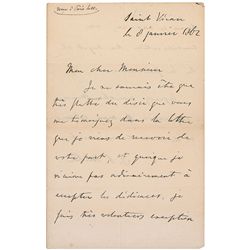 Saint Vivan
le 8 janvier 1862
Mon cher Monsieur
Je ne saurais être que
très flatté du désir que vous
me témoignez dans la lettre
que je viens de recevoir de
votre part, et quoique je
n'aime pas ordinairement à
accepter les dédicaces, je
fais très volontiers exception